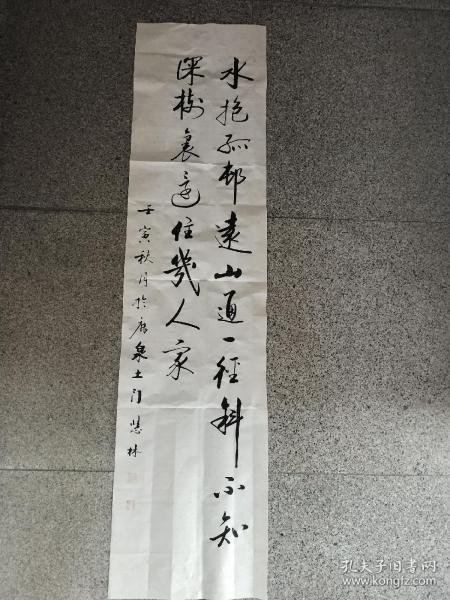 水抱孤邨遠山通一徑斜不知
深樹裏還住幾人家
壬寅秋月於唐泉土门慧林
孔夫子旧书网
www.kongfz.com